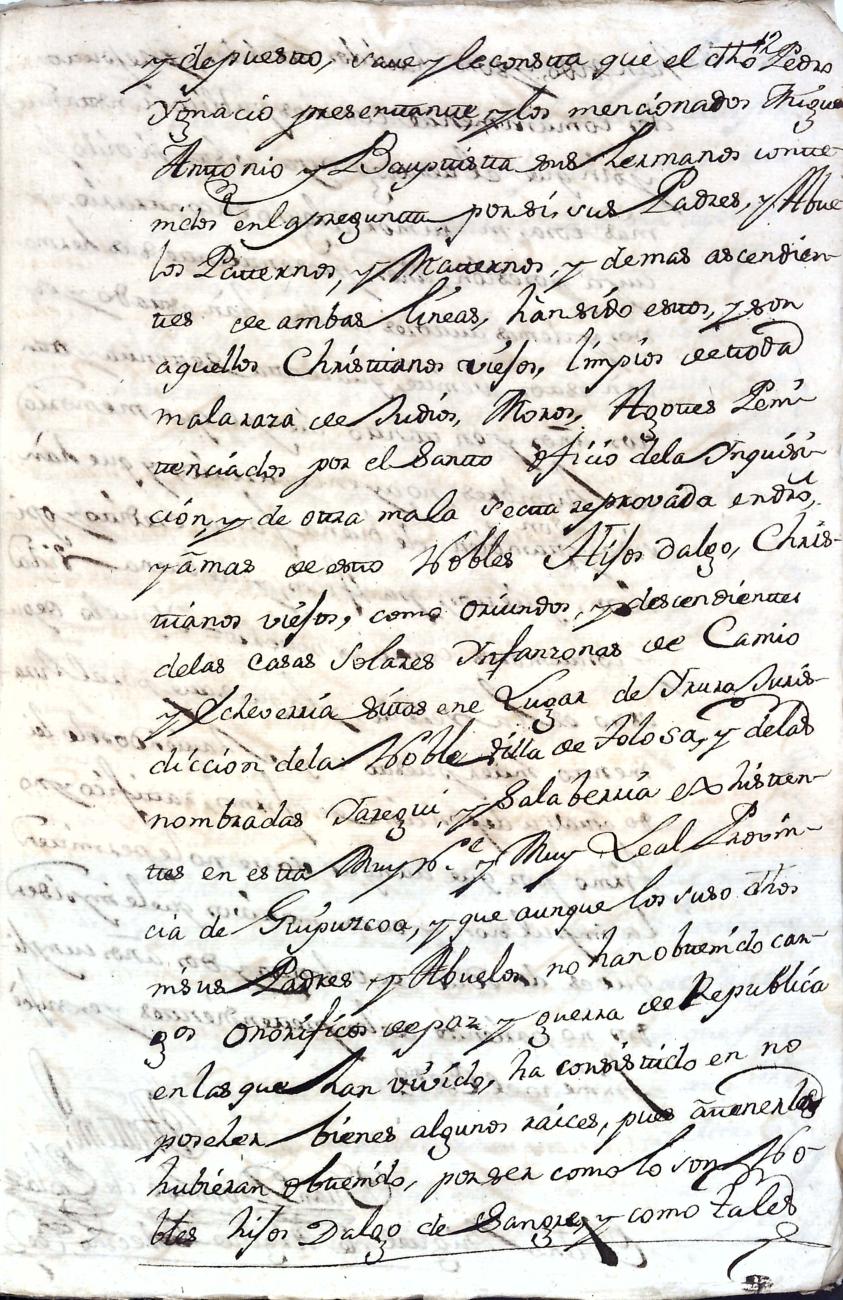 y depuesto, save y le consta que el dho Pedro
Ygnacio presentante, y los mencionados Miguel
Antonio y Bauptista sus hermanos conte-
nidos en la pregunta por si, sus Padres, y Abue
los Paternos, y Maternos, y demas ascendien-
tes de ambas lineas, han sido estos, y son
aquellos Christianos viejos, limpios de toda
mala raza de Judios, Moros, Agotes Peni-
tenciados por el Santo oficio dela Ynquisi-
ción, y de otra mala secta reprovada en dro,
y a mas de esto Nobles Hijos dalgo, Chris-
tianos viejos, como oriundos, y descendientes
delas casas solares Ynfanzonas de Camio
y Echeverria sitos en e Lugar de Yrura Juris-
diccion dela Noble Villa de Tolosa, y delas
nombradas Jaregui, y Salaberria existen-
tes en esta Muy N.e y Muy Leal Provin-
cia de Guipuzcoa, y que aunque los suso dhos
ni sus Padres, y Abuelos no han obtenido car-
gos onorificos de paz y guerra de Republica
en las que han vivido, ha consistido en no
poseher bienes algunos raices, pues a tenerlos
hubieran obtenido, por ser como lo son No-
bles hijos Dalgo de Sangre, y como tales